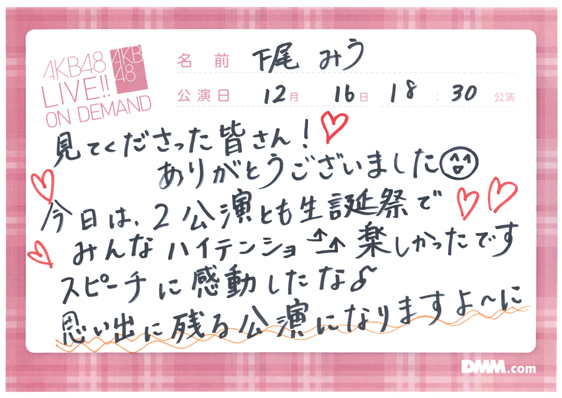 AKB48
LIVE!!
ON DEMAND
AKB
48
名前 下尾 みう
公演日 12月 16日 18:30 公演
見てくださった皆さん!
ありがとうございました
今日は、2公演とも生誕祭で
みんなハイテンショ↑↑楽しかったです
スピーチに感動したな♪
思い出に残る公演になりますよ〜に
DMM.com